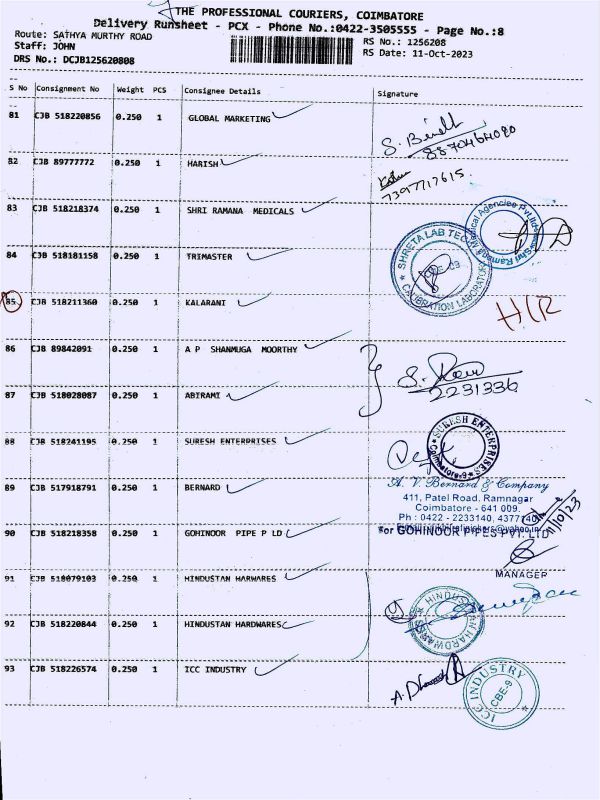 THE PROFESSIONAL COURIERS, COIMBATORE
Delivery Runsheet - PCX - Phone No.:0422-3505555 - Page No.:8
Route: SATHYA MURTHY ROAD
RS No.: 1256208
Staff: JOHN
RS Date: 11-Oct-2023
DRS No.: DCJB125620808
S No Consignment No Weight PCS Consignee Details Signature
81 CJB 518220856 0.250 1 GLOBAL MARKETING
8870464090
82 CJB 89777772 0.250 1 HARISH
7397717615.
83 CJB 518218374 0.250 1 SHRI RAMANA MEDICALS
84 CJB 518181158 0.250 1 TRIMASTER
SHRETA LAB TECH
CALIBRATION LABORATORY
85 CJB 518211360 0.250 1 KALARANI
86 CJB 89842091 0.250 1 A P SHANMUGA MOORTHY
2231336
87 CJB 518028087 0.250 1 ABIRAMI
88 CJB 518241195 0.250 1 SURESH ENTERPRISES
SURESH ENTERPRISES
Coimbatore-9
89 CJB 517918791 0.250 1 BERNARD
A. V. Bernard & Company
411, Patel Road, Ramnagar
Coimbatore - 641 009.
Ph : 0422 - 2233140, 4377140
90 CJB 518218358 0.250 1 GOHINOOR PIPE P LD
For GOHINOOR PIPES PVT. LTD
MANAGER
91 CJB 518079103 0.250 1 HINDUSTAN HARWARES
92 CJB 518220844 0.250 1 HINDUSTAN HARDWARES
HINDUSTAN HARDWARES
93 CJB 518226574 0.250 1 ICC INDUSTRY
ICC INDUSTRY
CBE-9